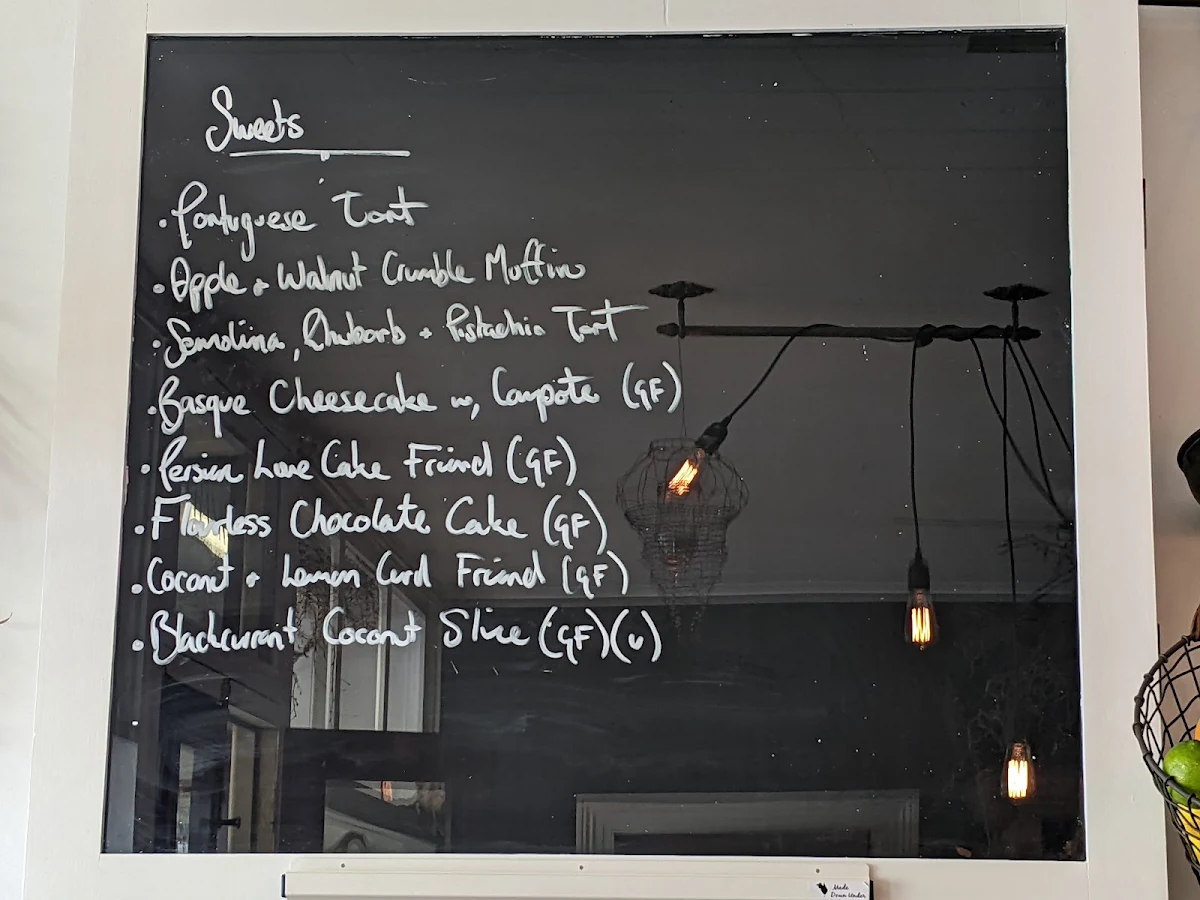 Sweets
• Portuguese Tart
• Apple + Walnut Crumble Muffins
• Semolina, Rhubarb + Pistachio Tart
• Basque Cheesecake w, Compote (GF)
• Persian Love Cake Friand (GF)
• Flourless Chocolate Cake (GF)
• Coconut + Lemon Curd Friand (GF)
• Blackcurrant Coconut Slice (GF)(V)
Made
Down Under